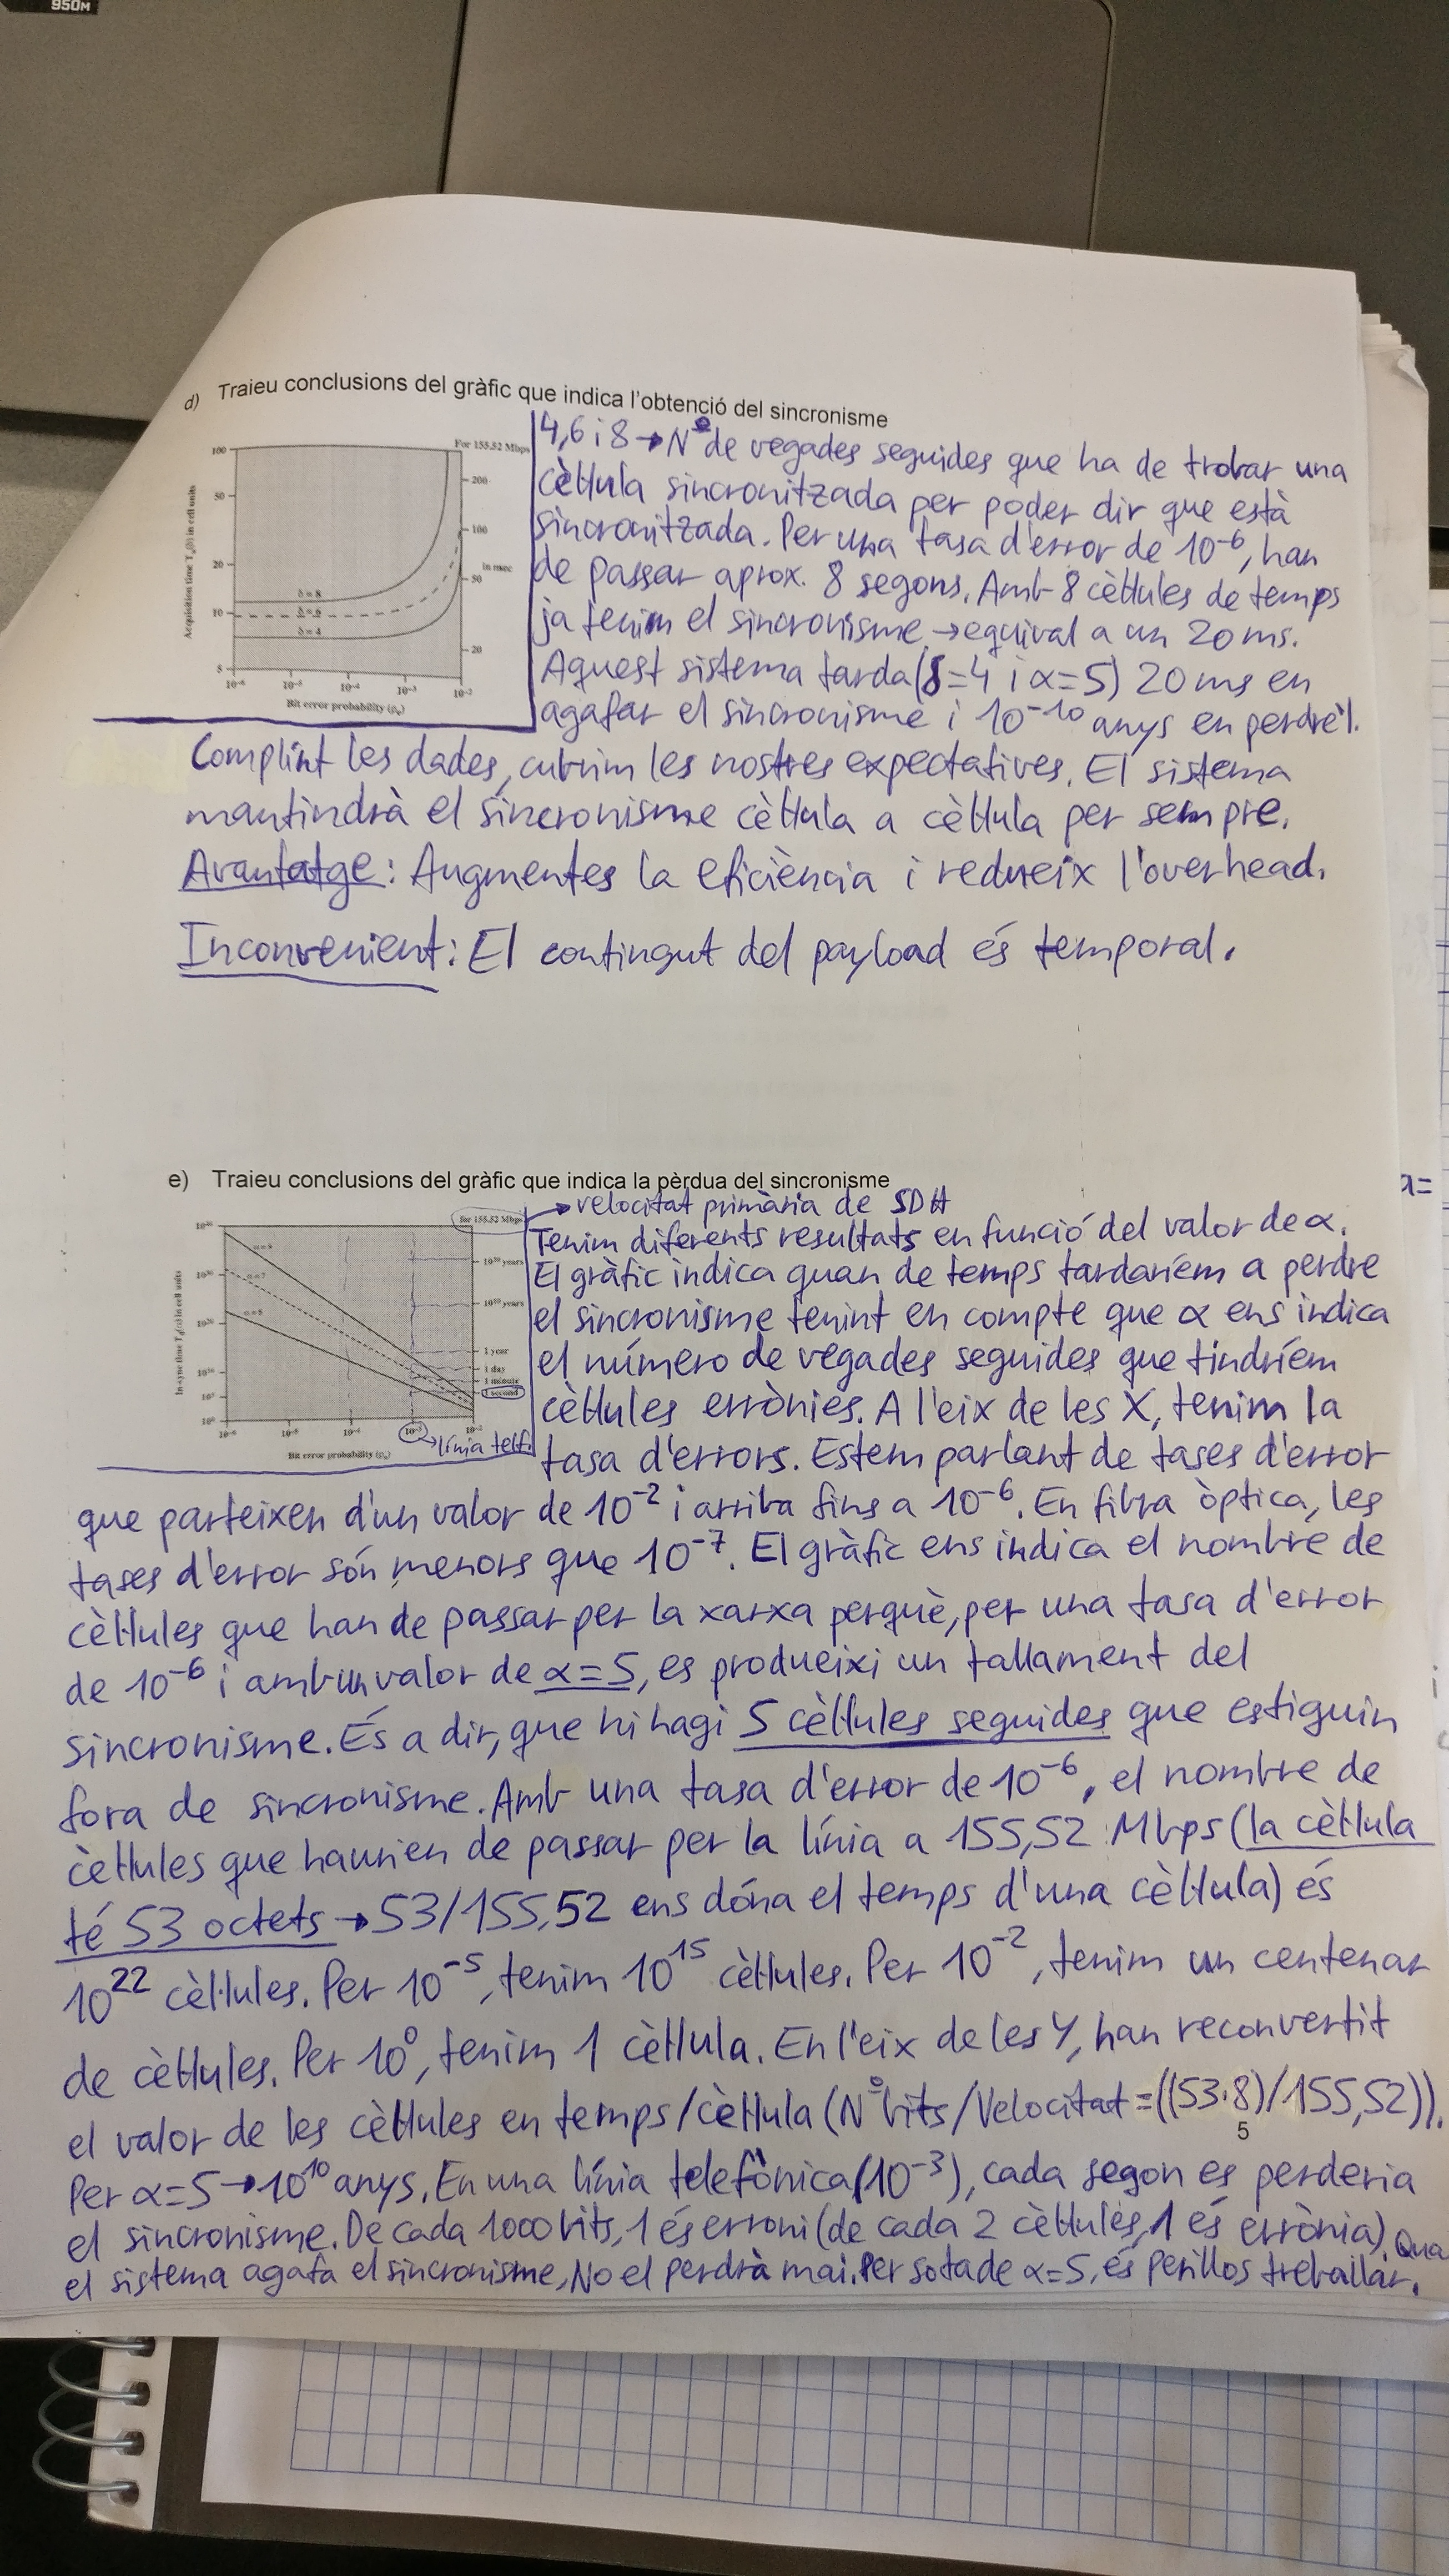 950M
d) Traieu conclusions del gràfic que indica l'obtenció del sincronisme
For 155.52 Mbps
Acquisition time
in cell units
100
50
20
10
5
200
100
in msec
50
20
δ = 8
δ = 6
δ = 4
10⁻⁶ 10⁻⁵ 10⁻⁴ 10⁻³ 10⁻²
Bit error probability
4,6 i 8 → Nº de vegades seguides que ha de trobar una
cèl·lula sincronitzada per poder dir que està
sincronitzada. Per una tasa d'error de 10⁻⁶, han
de passar aprox. 8 segons. Amb 8 cèl·lules de temps
ja tenim el sincronisme → equival a un 20 ms.
Aquest sistema tarda (δ=4 i α=5) 20 ms en
agafar el sincronisme i 10⁻¹⁰ anys en perdre'l.
Complint les dades, cubrim les nostres expectatives. El sistema
mantindrà el sincronisme cèl·lula a cèl·lula per sempre.
Avantatge: Augmentes la eficiència i redueix l'overhead.
Inconvenient: El contingut del payload és temporal.
e) Traieu conclusions del gràfic que indica la pèrdua del sincronisme
for 155.52 Mbps
→ velocitat primària de SDH
In-sync time
in cell units
1 year
1 day
1 minute
1 second
10⁻⁶ 10⁻⁵ 10⁻⁴ 10⁻³ 10⁻²
→ línia telf.
Bit error probability
Tenim diferents resultats en funció del valor de α.
El gràfic indica quan de temps tardaríem a perdre
el sincronisme tenint en compte que α ens indica
el número de vegades seguides que tindríem
cèl·lules errònies. A l'eix de les X, tenim la
tasa d'errors. Estem parlant de tases d'error
que parteixen d'un valor de 10⁻² i arriba fins a 10⁻⁶. En fibra òptica, les
tases d'error són menors que 10⁻⁷. El gràfic ens indica el nombre de
cèl·lules que han de passar per la xarxa perquè, per una tasa d'error
de 10⁻⁶ i amb un valor de α=5, es produeixi un tallament del
sincronisme. És a dir, que hi hagi 5 cèl·lules seguides que estiguin
fora de sincronisme. Amb una tasa d'error de 10⁻⁶, el nombre de
cèl·lules que haurien de passar per la línia a 155,52 Mbps (la cèl·lula
té 53 octets → 53/155,52 ens dóna el temps d'una cèl·lula) és
10²² cèl·lules. Per 10⁻⁵, tenim 10¹⁵ cèl·lules. Per 10⁻², tenim un centenar
de cèl·lules. Per 10⁰, tenim 1 cèl·lula. En l'eix de les Y, han reconvertit
el valor de les cèl·lules en temps/cèl·lula (Nº bits/Velocitat = ((53·8)/155,52)).
5
Per α=5 → 10¹⁰ anys. En una línia telefònica (10⁻³), cada segon es perderia
el sincronisme. De cada 1000 bits, 1 és erroni (de cada 2 cèl·lules, 1 és errònia). Qua
el sistema agafa el sincronisme, No el perdrà mai. Per sota de α=5, és perillos treballar.